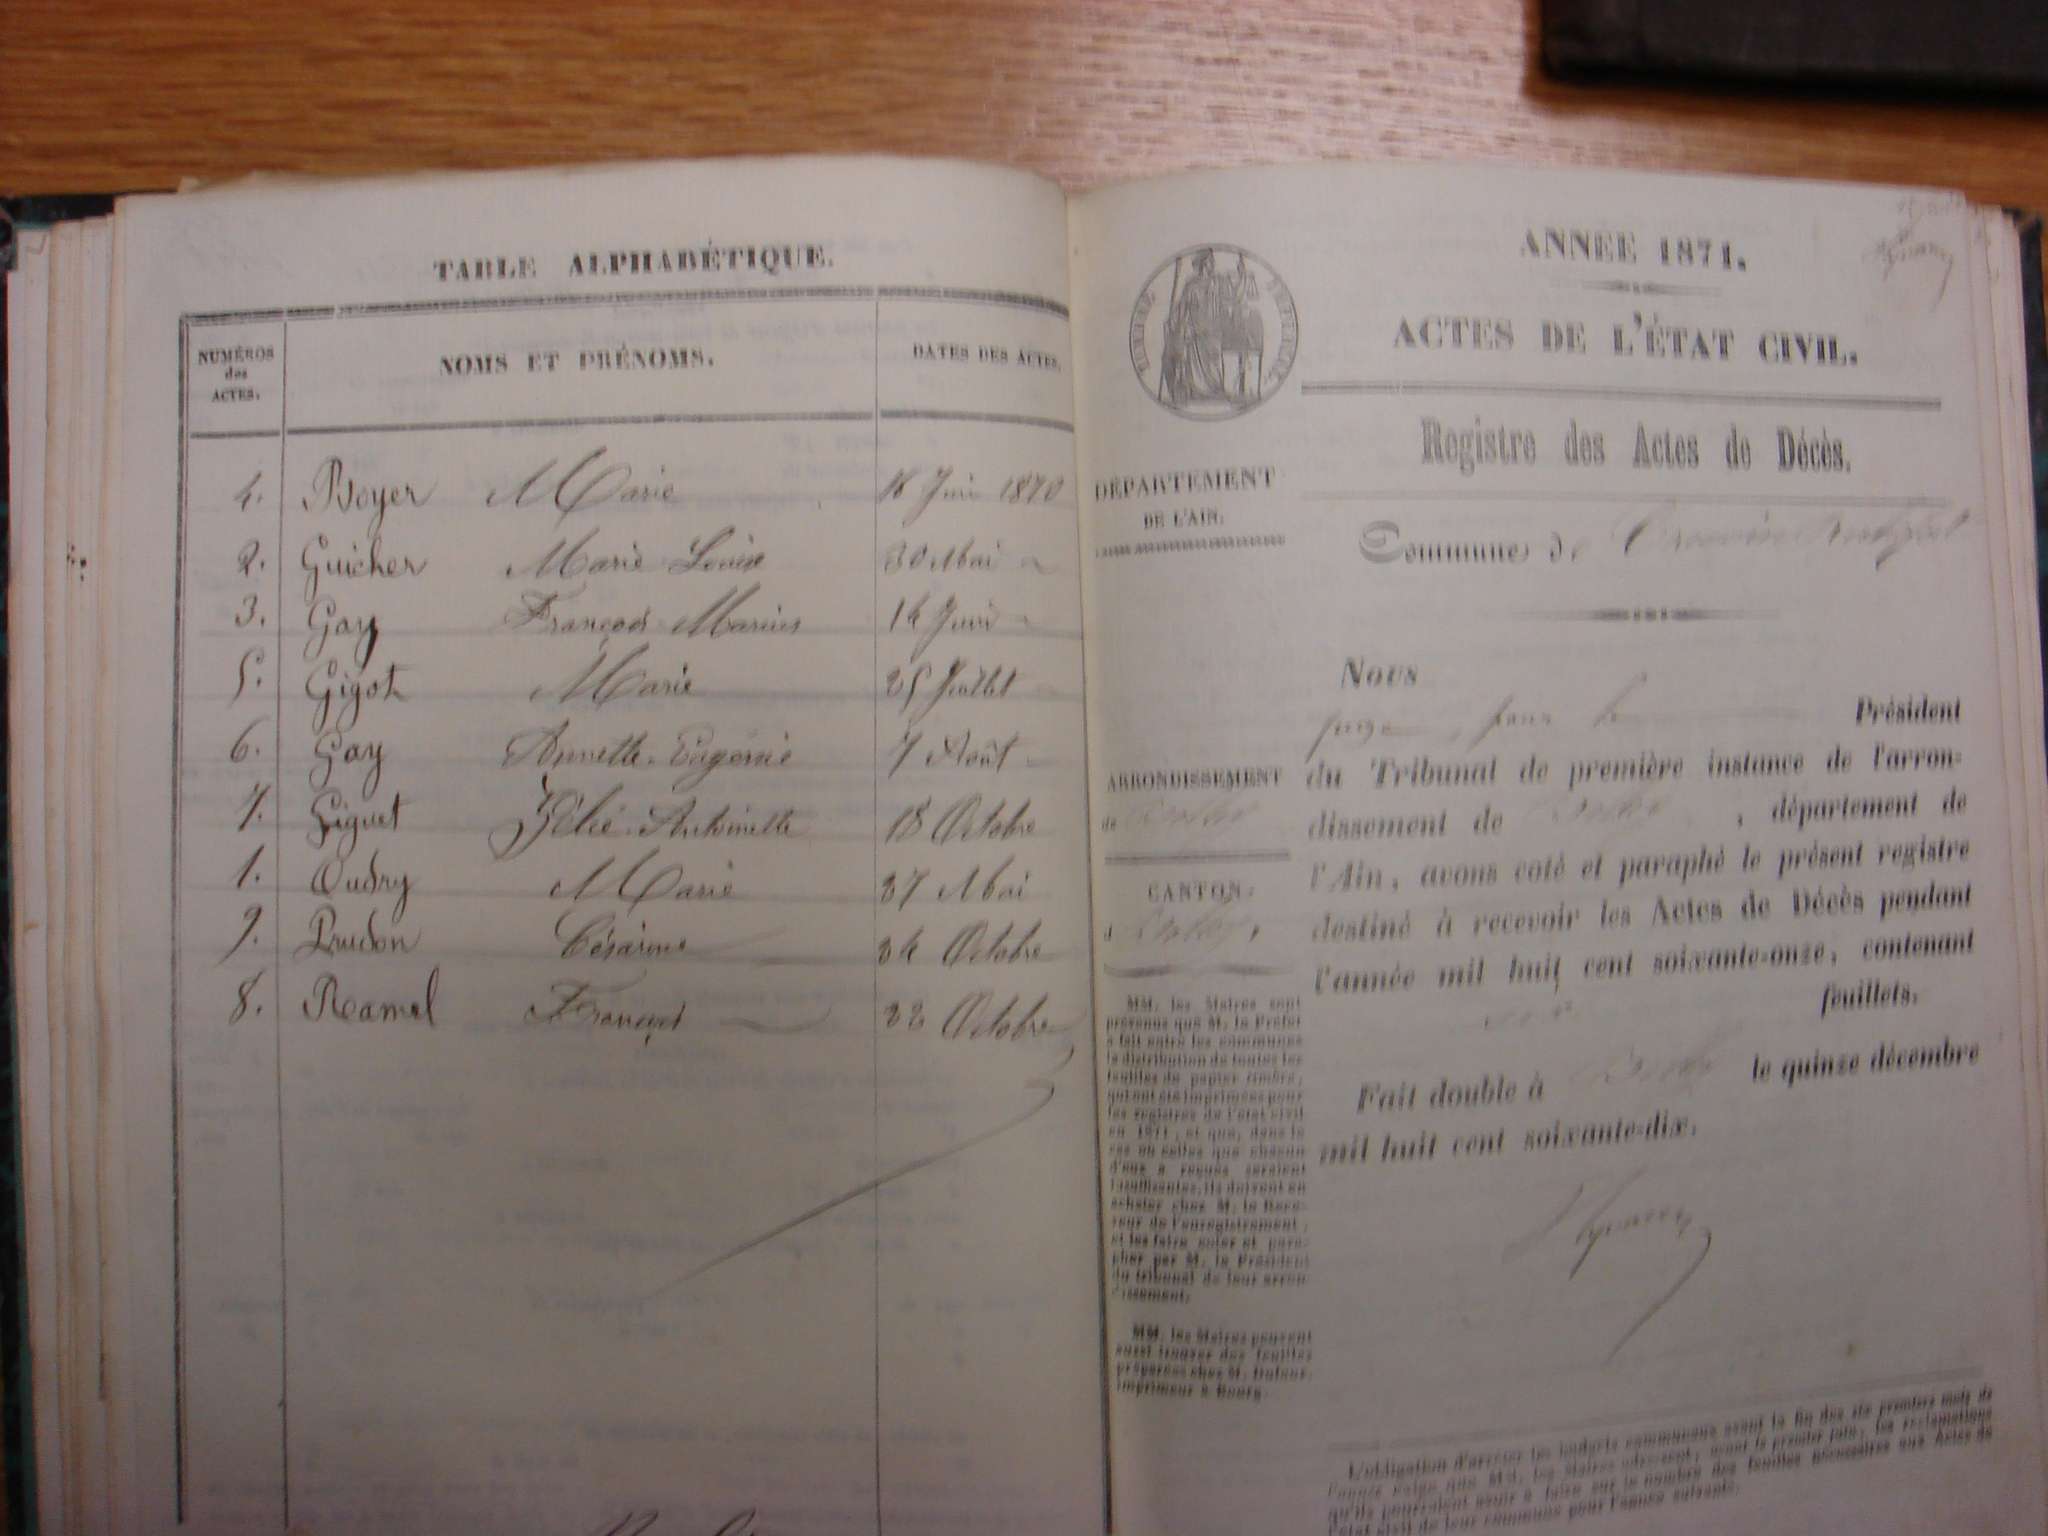 TABLE ALPHABÉTIQUE.
NUMÉROS des ACTES.
NOMS ET PRÉNOMS.
DATES DES ACTES.
4. Boyer Marie Juin 1870
2. Guicher Marie Louise 30 Mai
3. Gay François Marius 14 Juin
5. Gigot Marie 25 Juillet
6. Gay Annette-Eugénie 7 Août
7. Giguet Antoinette 18 Octobre
1. Oudry Marie 27 Mai
9. Prudon Césarine 24 Octobre
8. Ramel François 22 Octobre
ANNÉE 1871.
ACTES DE L'ÉTAT CIVIL.
Registre des Actes de Décès.
DÉPARTEMENT
DE L'AIN.
Commune de
ARRONDISSEMENT
de Belley
CANTON:
Nous
juge, pour le Président
du Tribunal de première instance de l'arron-
dissement de Belley, département de
l'Ain, avons coté et paraphé le présent registre
destiné à recevoir les Actes de Décès pendant
l'année mil huit cent soixante-onze, contenant
feuillets.
Fait double à Belley le quinze décembre
mil huit cent soixante-dix.
MM. les Maires sont
prévenus que M. le Préfet
a fait entre les communes
la distribution de toutes les
feuilles du papier timbré,
qui ont été imprimées pour
les registres de l'état civil
en 1871, et que, dans le
cas où celles que chacun
d'eux a reçues seraient
insuffisantes, ils doivent en
acheter chez M. le Rece-
veur de l'enregistrement,
et les faire coter et para-
pher par M. le Président
du tribunal de leur arron-
dissement.
MM. les Maires peuvent
aussi trouver des feuilles
préparées chez M. Dufour,
imprimeur à Bourg.
L'obligation d'arrêter les budgets communaux avant la fin des six premiers mois de
l'année exige que MM. les Maires adressent, avant le premier juin, les réclamations
qu'ils pourraient avoir à faire sur le nombre des feuilles nécessaires aux Actes de
l'état civil de leur commune pour l'année suivante.